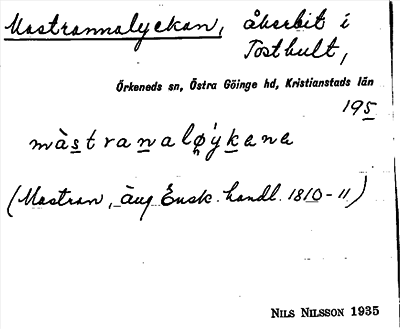 Mostrannalyckan, åkerbit i
Tosthult,
Örkeneds sn, Östra Göinge hd, Kristianstads län
195
(Mostran, äug Ensk. handl. 1810-11)
NILS NILSSON 1935